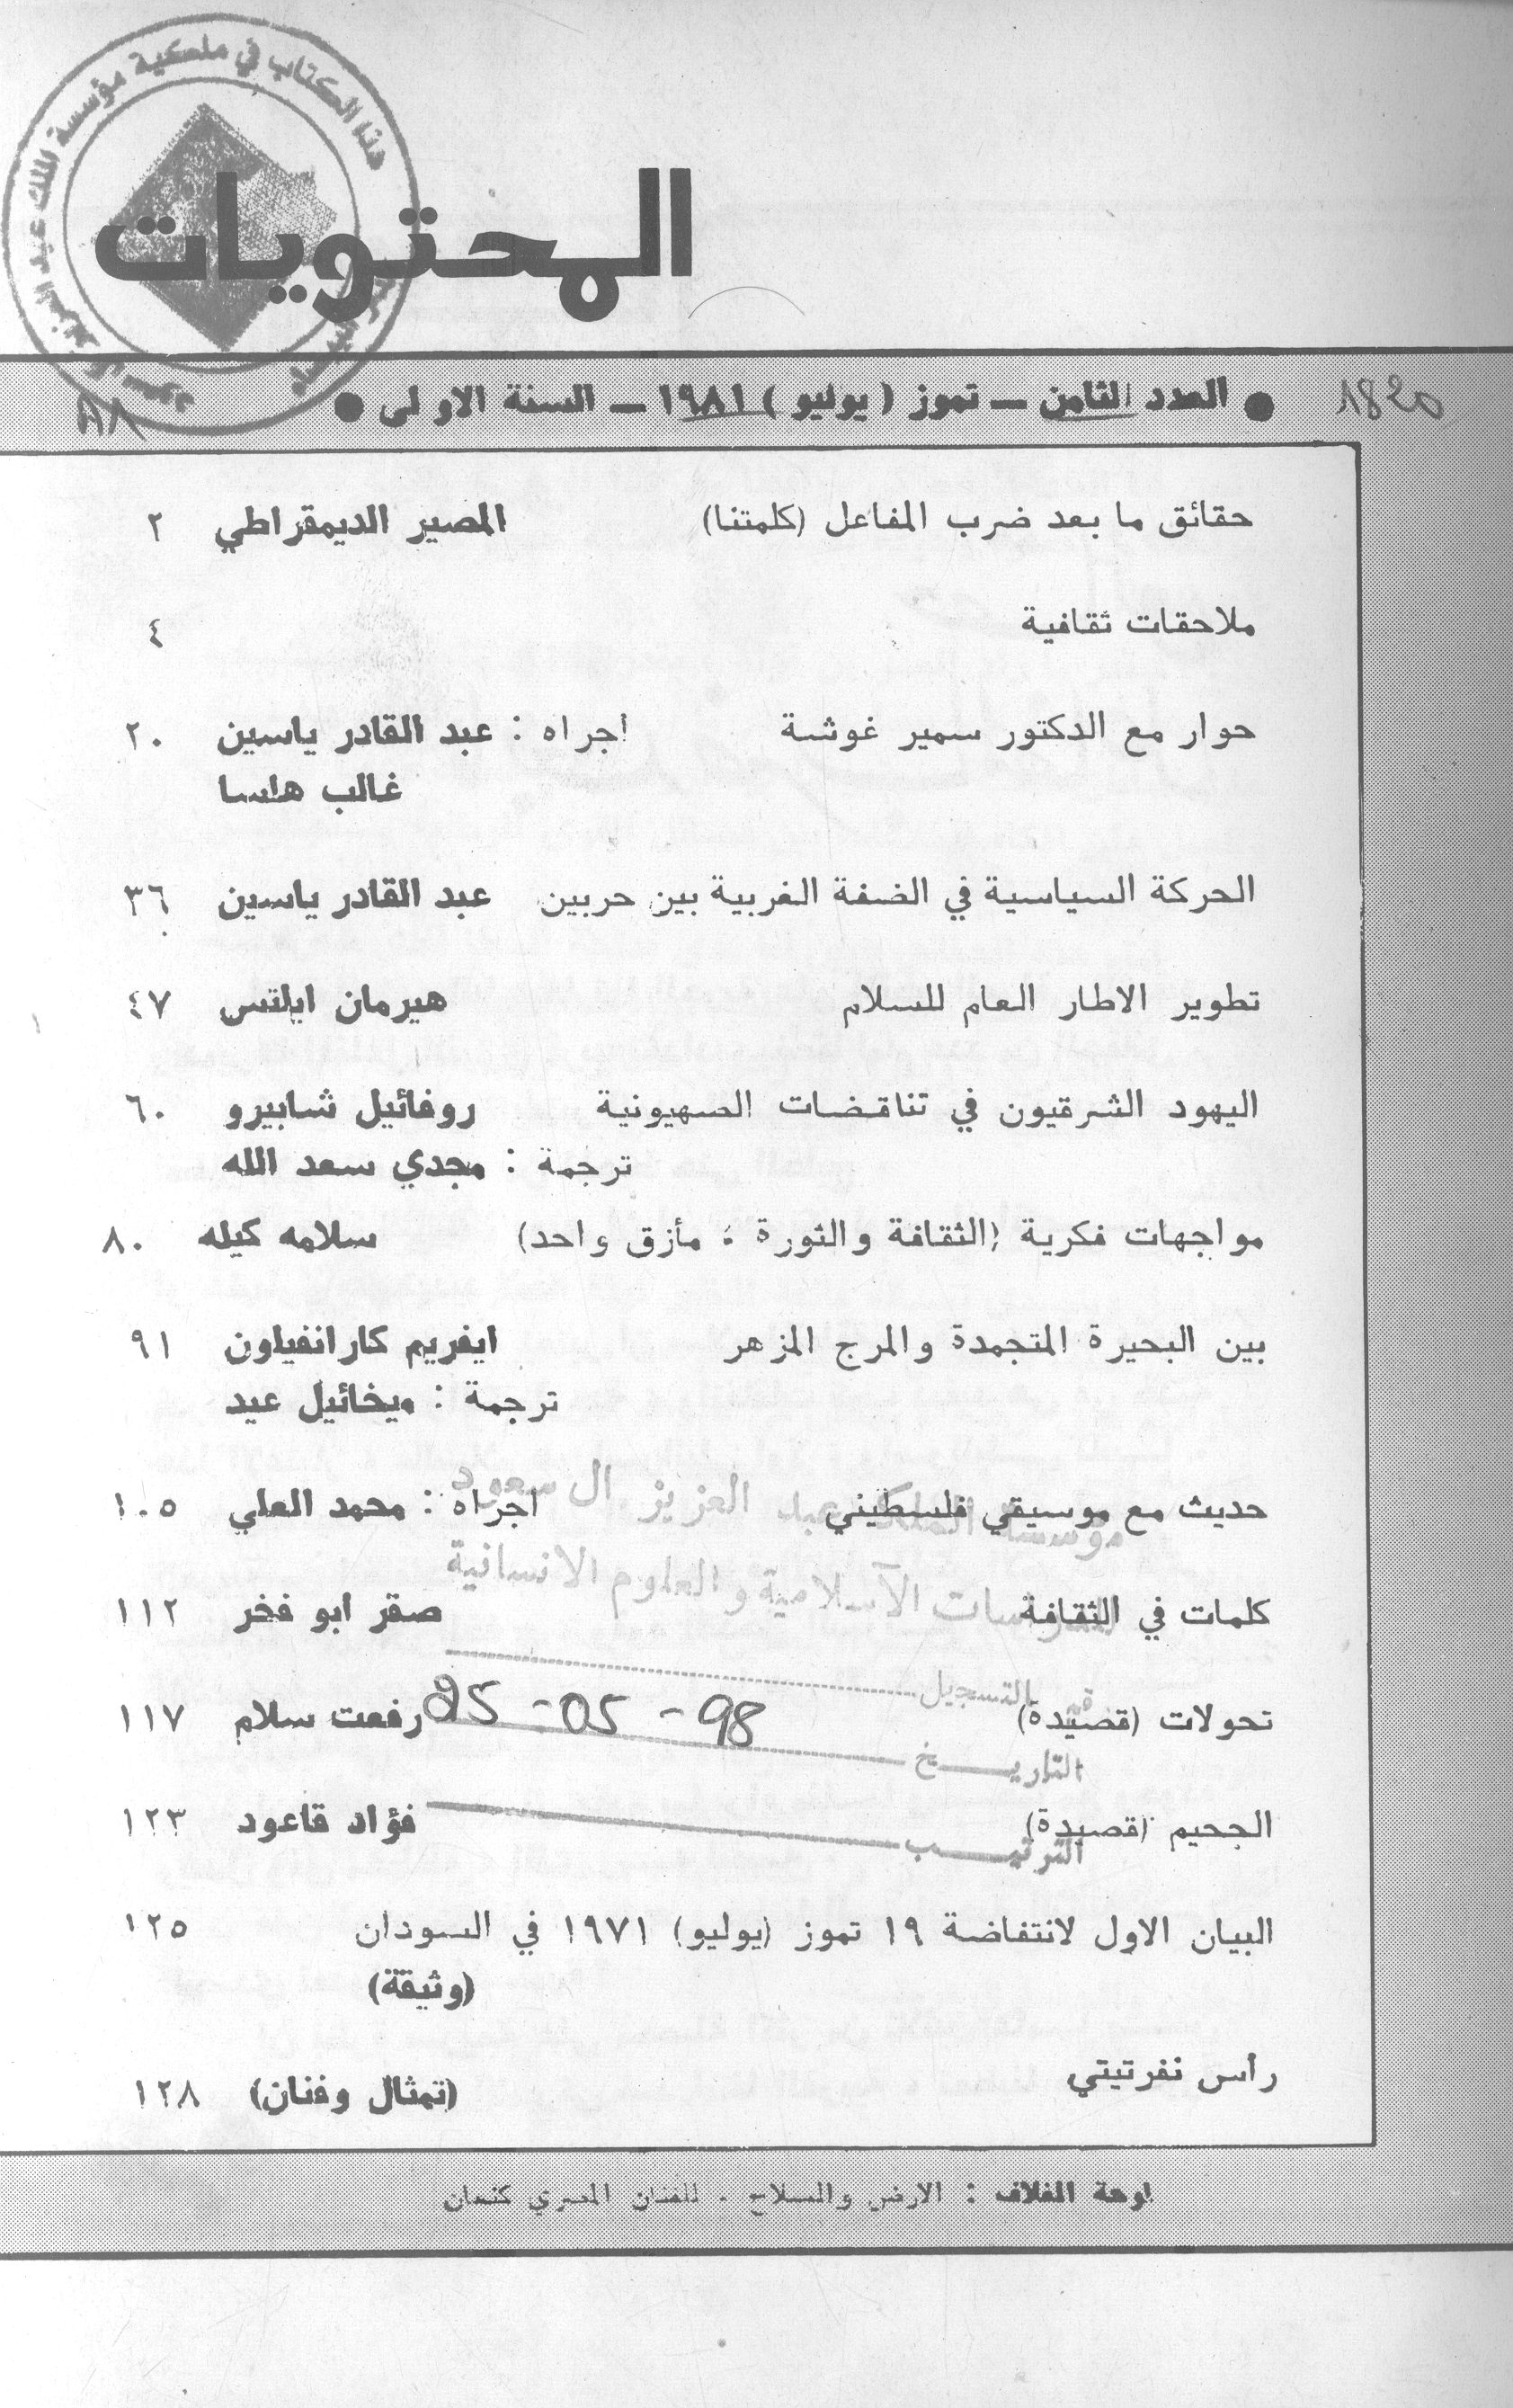 هذا الكتاب في ملكية مؤسسة الملك عبد العزيز آل سعود
المحتويات
1820
● العدد الثامن — تموز ( يوليو ) ١٩٨١ — السنة الاولى ●
حقائق ما بعد ضرب المفاعل (كلمتنا) المصير الديمقراطي ٢
ملاحقات ثقافية ٤
حوار مع الدكتور سمير غوشة اجراه : عبد القادر ياسين ٢٠
غالب هلسا
الحركة السياسية في الضفة الغربية بين حربين عبد القادر ياسين ٣٦
تطوير الاطار العام للسلام هيرمان ايلتس ٤٧
اليهود الشرقيون في تناقضات الصهيونية روفائيل شابيرو ٦٠
ترجمة : مجدي سعد الله
مواجهات فكرية (الثقافة والثورة : مأزق واحد) سلامه كيله ٨٠
بين البحيرة المتجمدة والمرج المزهر ايفريم كارانفياون ٩١
ترجمة : ميخائيل عيد
حديث مع موسيقي فلسطيني اجراه : محمد العلي ١٠٥
مؤسسة الملك عبد العزيز آل سعود
للدراسات الاسلامية والعلوم الانسانية
كلمات في الثقافة صقر ابو فخر ١١٢
رقم التسجيل
تحولات (قصيدة) رفعت سلام ١١٧
25 - 05 - 98
التاريـــخ
الجحيم (قصيدة) فؤاد قاعود ١٢٣
الترتيـــب
البيان الاول لانتفاضة ١٩ تموز (يوليو) ١٩٧١ في السودان ١٢٥
(وثيقة)
رأس نفرتيتي (تمثال وفنان) ١٢٨
لوحة الغلاف : الارض والسلاح . للفنان المصري كنعان